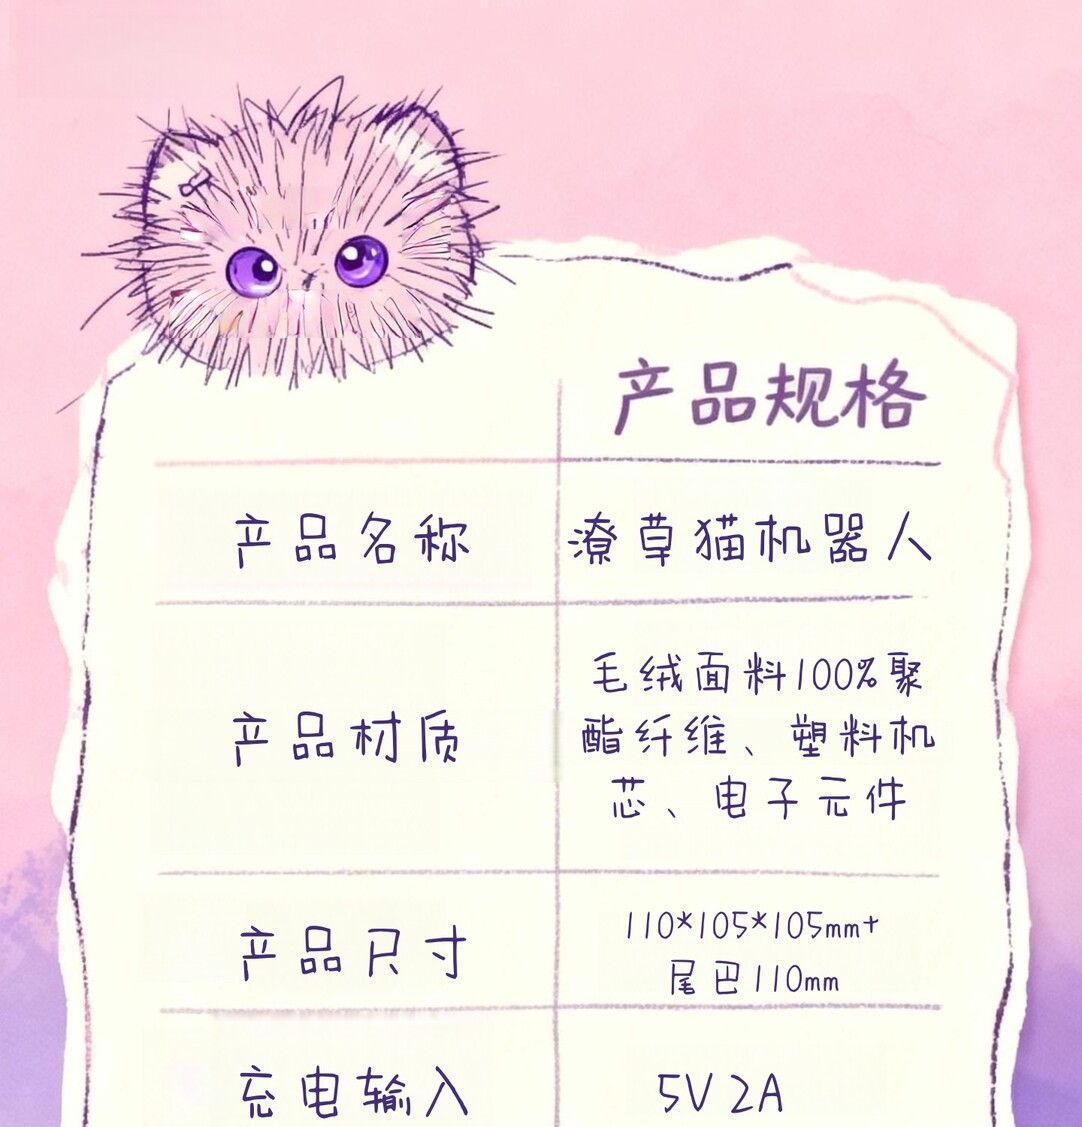 产品规格
产品名称
潦草猫机器人
产品材质
毛绒面料100%聚
酯纤维、塑料机
芯、电子元件
产品尺寸
110*105*105mm+
尾巴110mm
充电输入
5V 2A